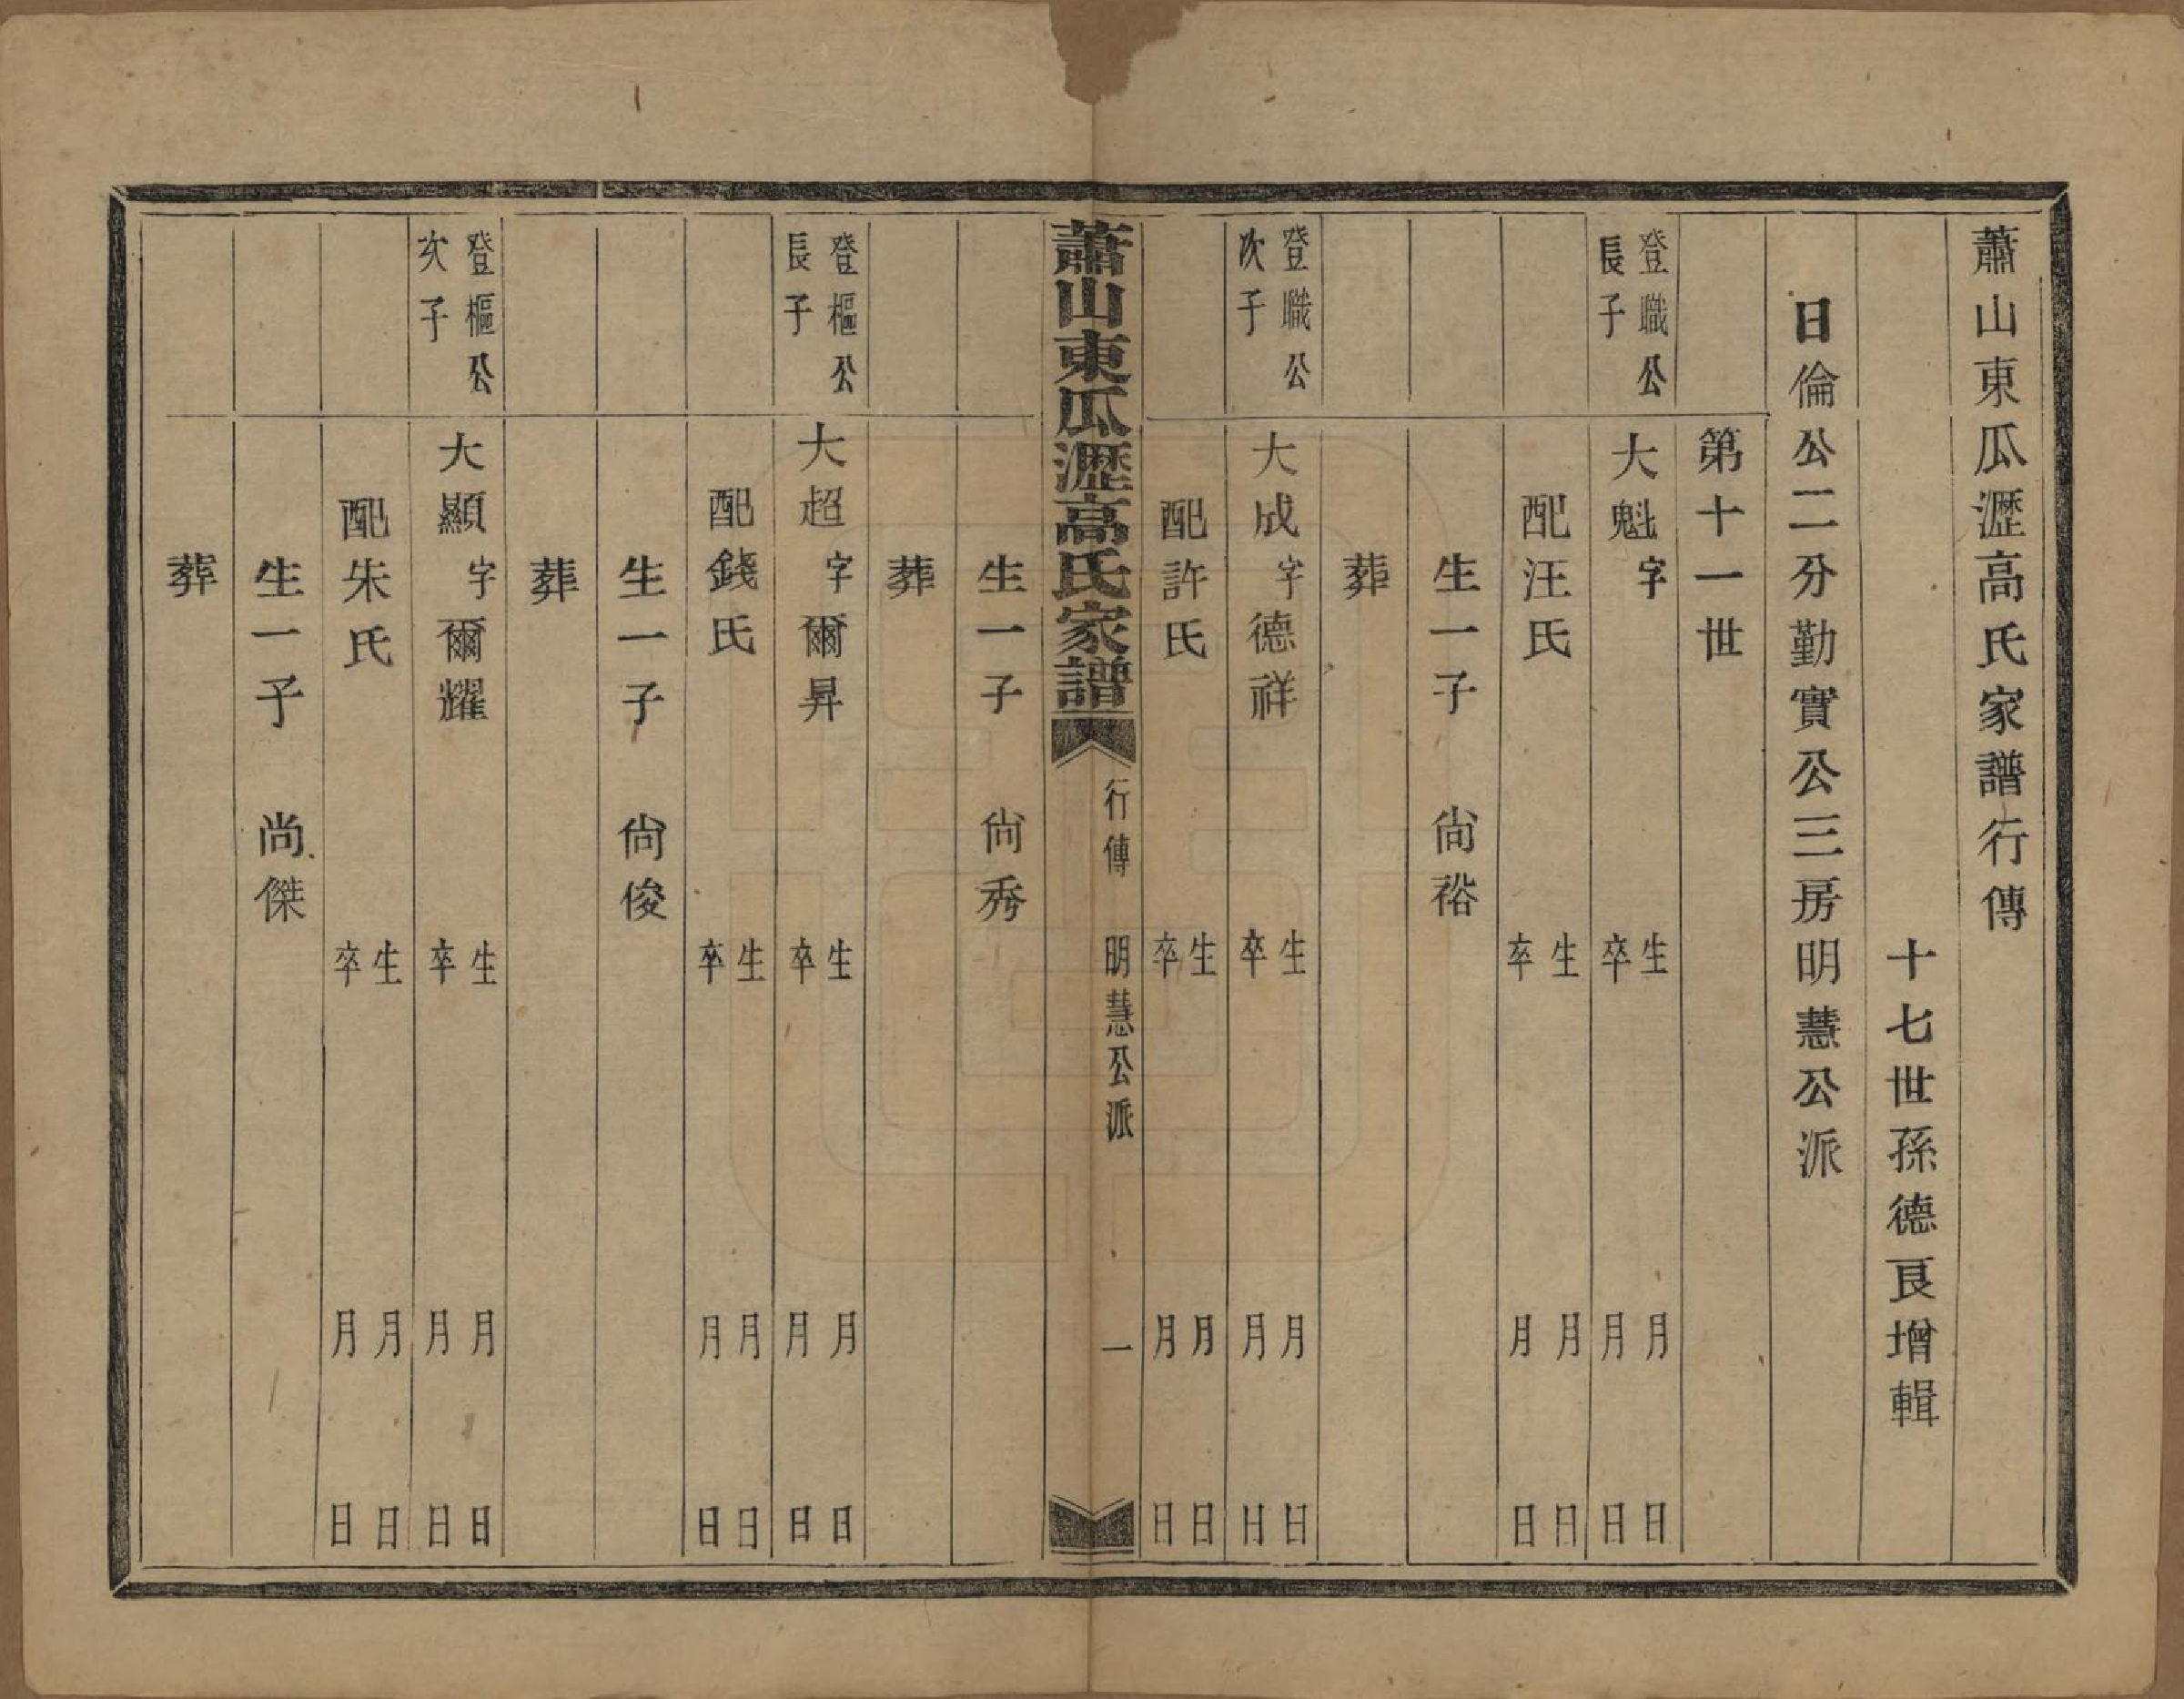 蕭山東瓜瀝高氏家譜行傳
十七世孫德良增輯
日倫公二分勤實公三房明慧公派
第十一世
登職公
長子
大魁字
生 月 日
卒 月 日
配汪氏
生 月 日
卒 月 日
生一子 尙裕
葬
登職公
次子
大成字德祥
生 月 日
卒 月 日
配許氏
生 月 日
卒 月 日
蕭山東瓜瀝高氏家譜 行傳 明慧公派 一
生一子 尙秀
葬
登樞公
長子
大超字爾昇
生 月 日
卒 月 日
配錢氏
生 月 日
卒 月 日
生一子 尙俊
葬
登樞公
次子
大顯字爾耀
生 月 日
卒 月 日
配朱氏
生 月 日
卒 月 日
生一子 尚傑
葬